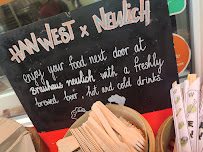 HAN WEST x NEULICH
enjoy your food next door at
Brauhaus neulich with a freshly
brewed beer, hot and cold drinks.